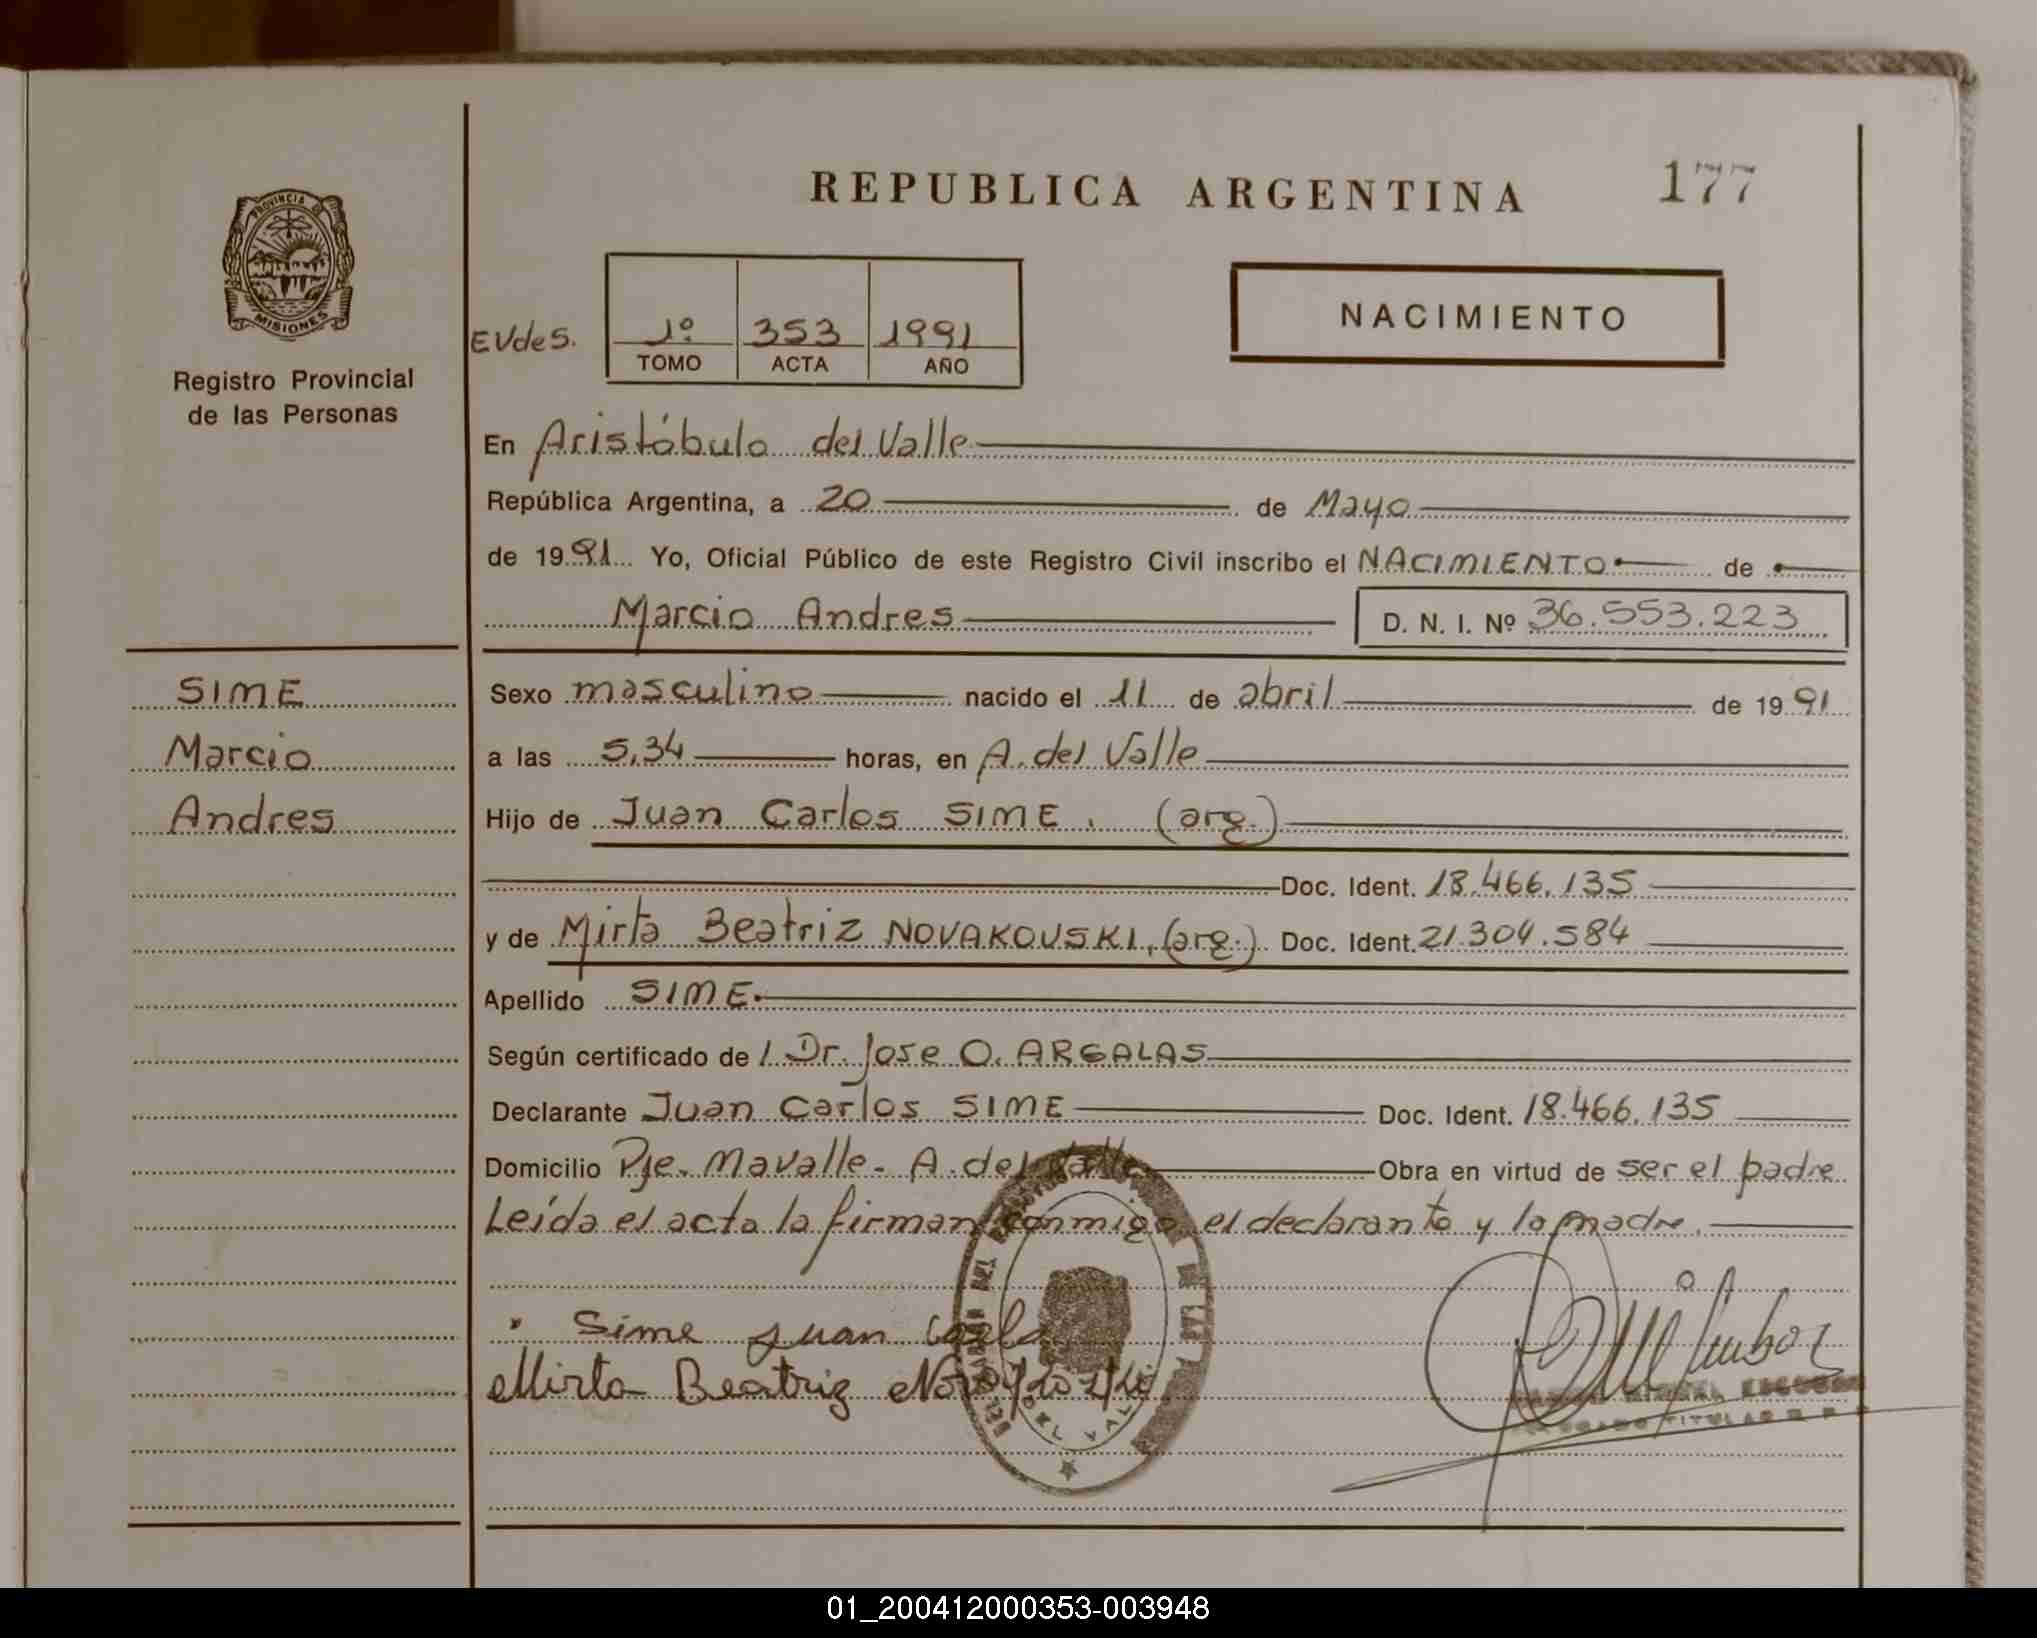 REPUBLICA ARGENTINA
177
PROVINCIA DE
MISIONES
Registro Provincial
de las Personas
EVdeS.
1º 353 1991
TOMO ACTA AÑO
NACIMIENTO
En Aristóbulo del Valle
República Argentina, a 20 de Mayo
de 1991 Yo, Oficial Público de este Registro Civil inscribo el NACIMIENTO de
Marcio Andres
D. N. I. Nº 36.553.223
SIME
Marcio
Andres
Sexo masculino nacido el 11 de abril de 1991
a las 5,34 horas, en A. del Valle
Hijo de Juan Carlos SIME. (arg.)
Doc. Ident. 18.466.135
y de Mirta Beatriz NOVAKOUSKI, (arg.) Doc. Ident. 21.304.584
Apellido SIME.
Según certificado de / Dr. Jose O. ARGALAS
Declarante Juan Carlos SIME Doc. Ident. 18.466.135
Domicilio Pje. Mavalle - A. del Valle Obra en virtud de ser el padre
Leída el acta la firman conmigo el declarante y la madre.
Sime Juan Carlo
Mirta Beatriz
DEL VALLE
TITULAR
01_200412000353-003948